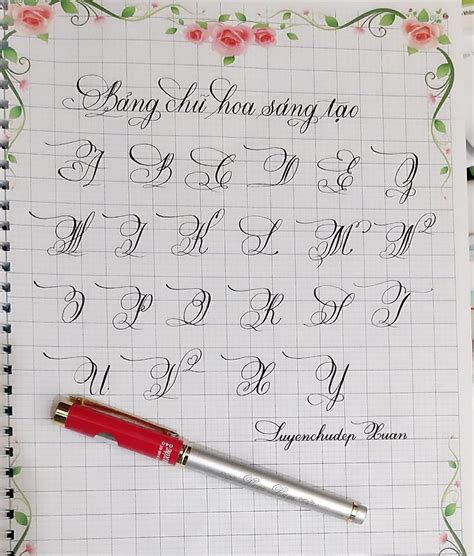 Bảng chữ hoa sáng tạo
A B C D E G
H I K L M N
O P Q R S T
U V X Y
Luyenchudep Xuan